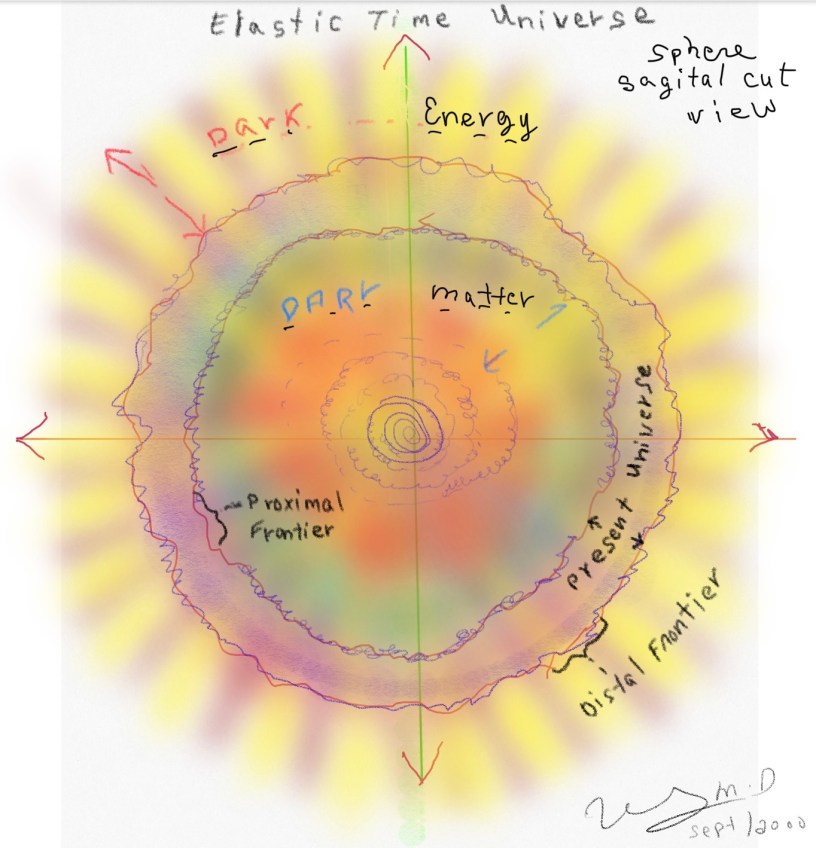 Elastic Time Universe
sphere
sagital cut
view
Dark Energy
DARK matter
Present Universe
Proximal
Frontier
Distal Frontier
M.D
sept/2000